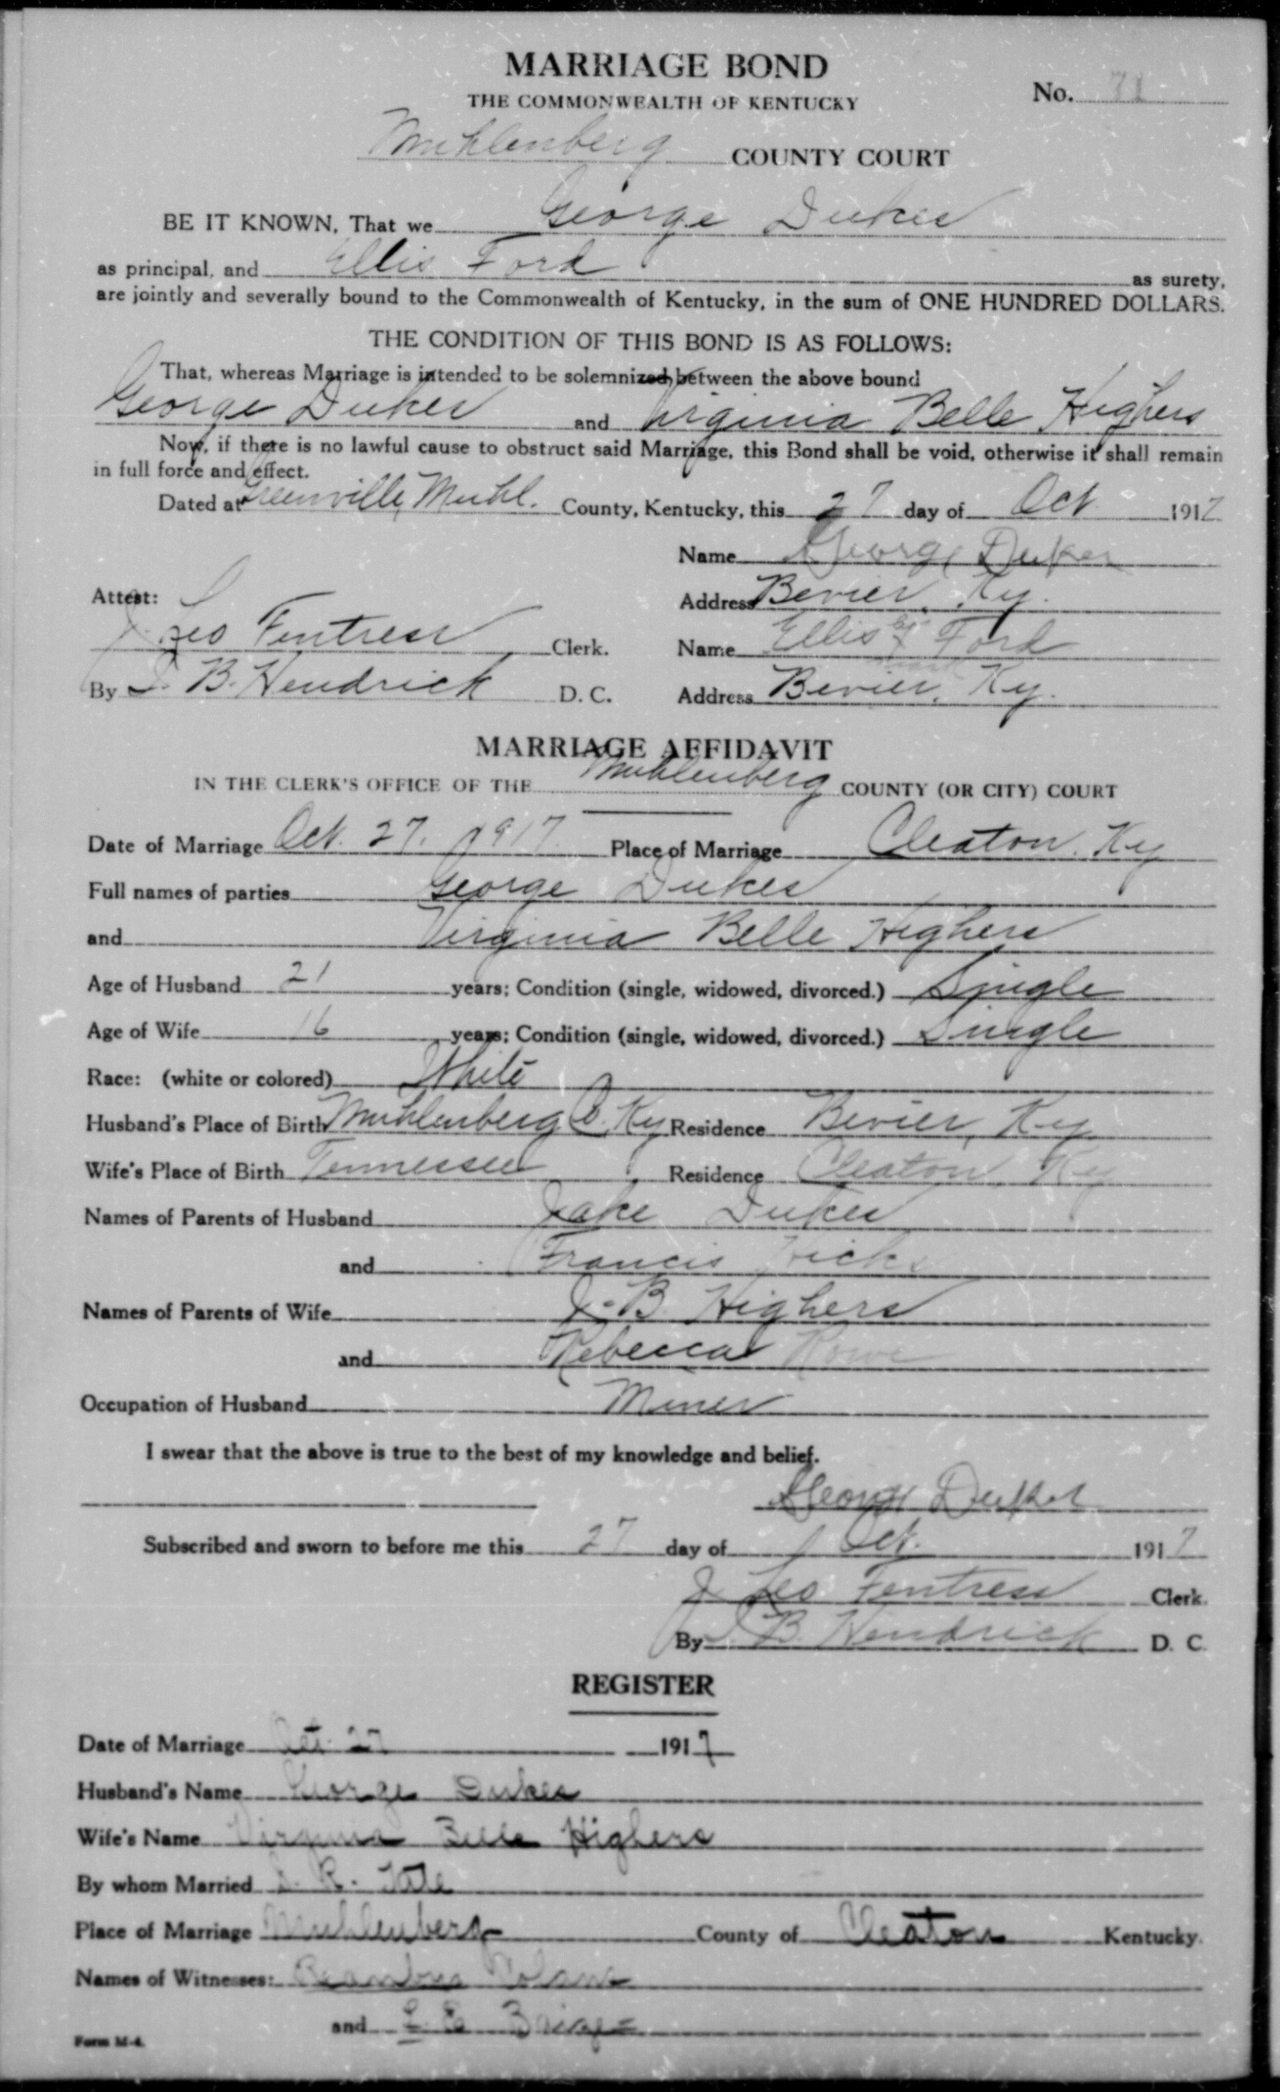 MARRIAGE BOND
THE COMMONWEALTH OF KENTUCKY
No. 71
Muhlenberg COUNTY COURT
BE IT KNOWN, That we George Dukes
as principal, and Ellis Ford as surety,
are jointly and severally bound to the Commonwealth of Kentucky, in the sum of ONE HUNDRED DOLLARS.
THE CONDITION OF THIS BOND IS AS FOLLOWS:
That, whereas Marriage is intended to be solemnized between the above bound
George Dukes and Virginia Belle Highers
Now, if there is no lawful cause to obstruct said Marriage, this Bond shall be void, otherwise it shall remain
in full force and effect.
Dated at Greenville, Muhl. County, Kentucky, this 27 day of Oct. 1917
Name George Dukes
Attest:
Address Bevier, Ky.
J. Leo Fentress Clerk.
Name Ellis Ford
By J. B. Hendrick D. C.
Address Bevier, Ky.
MARRIAGE AFFIDAVIT
IN THE CLERK'S OFFICE OF THE Muhlenberg COUNTY (OR CITY) COURT
Date of Marriage Oct. 27. 1917. Place of Marriage Cleaton, Ky
Full names of parties George Dukes
and Virginia Belle Highers
Age of Husband 21 years; Condition (single, widowed, divorced.) Single
Age of Wife 16 years; Condition (single, widowed, divorced.) Single
Race: (white or colored) White
Husband's Place of Birth Muhlenberg Co, Ky Residence Bevier, Ky
Wife's Place of Birth Tennessee Residence Cleaton, Ky
Names of Parents of Husband Jake Dukes
and Francis Hicks
Names of Parents of Wife J. B. Highers
and Rebecca Rowe
Occupation of Husband Miner
I swear that the above is true to the best of my knowledge and belief.
George Dukes
Subscribed and sworn to before me this 27 day of Oct. 1917
J. Leo Fentress Clerk.
By J. B. Hendrick D. C.
REGISTER
Date of Marriage Oct. 27 1917
Husband's Name George Dukes
Wife's Name Virginia Belle Highers
By whom Married R. Tate
Place of Marriage Muhlenberg County of Cleaton Kentucky.
Names of Witnesses:
and
Form M-4.